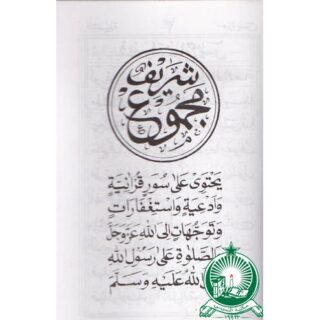 مجموع شريف
يَحْتَوِى عَلىٰ سُوَرٍ قُرْآنِيَّةٍ
وَاَدْعِيَةٍ وَاسْتِغْفَارَاتٍ
وَتَوَجُّهَاتٍ اِلَى اللهِ عَزَّوَجَلَّ
وَالصَّلَاوةِ عَلىٰ رَسُوْلِ اللهِ
اللهُ عَلَيْهِ وَسَلَّمَ